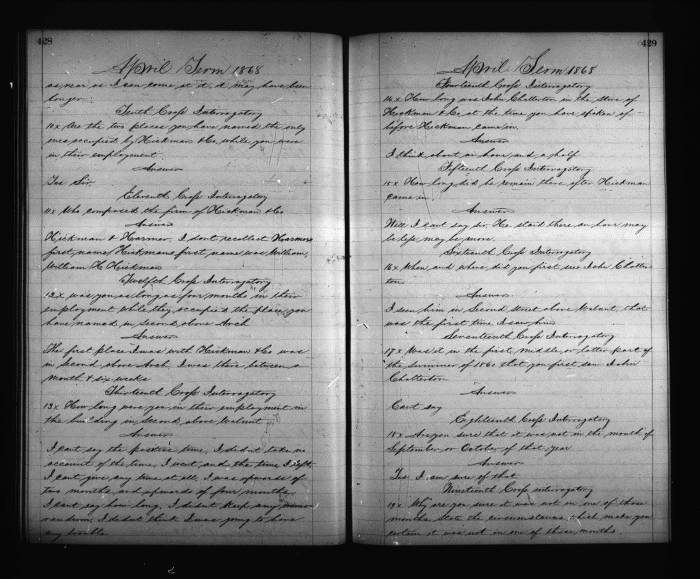 428
April Term 1868
as near as I can come at it, it may have been
longer.
Tenth Cross Interrogatory
10 x Are the two places you have named the only
ones occupied by Hickman & Co, while you were
in their employment.
Answer
Yes Sir.
Eleventh Cross Interrogatory
11 x Who composed the firm of Hickman & Co
Answer
Hickman & Harmer, I dont recollect Harmers
first name, Hickmans first name was William,
William H. Hickman
Twelfth Cross Interrogatory
12 x was you as long as four months in their
employment while they occupied the place you
have named in second above Arch
Answer
The first place I was with Hickman & Co was
in second above Arch. I was there between a
month & six weeks
Thirteenth Cross Interrogatory
13 x How long were you in their employment in
the building in second above Walnut
Answer
I cant say the positive time, I did not take no
account of the time, I went and the time I left,
I cant give any time at all. I was upwards of
two months and upwards of four months
I cant say how long, I didnt keep any
I didnt think I was going to have
any trouble
429
April Term 1868
Fourteenth Cross Interrogatory
14 x How long was John Chatterton in the store of
Hickman & Co at the time you have spoken of
before Hickman came in.
Answer
I think about an hour and a half
Fifteenth Cross Interrogatory
15 x How long did he remain there after Hickman
came in.
Answer
Well I cant say sir. He staid there an hour may
be less, may be more.
Sixteenth Cross Interrogatory
16 x When and where did you first see John Chatter-
ton
Answer
I seen him in Second Street above Walnut, that
was the first time I saw him
Seventeenth Cross Interrogatory
17 x Was it in the first, middle or latter part of
the summer of 1861 that you first seen John
Chatterton
Answer
Cant say
Eighteenth Cross Interrogatory
18 x Are you sure that it was not in the month of
September or October of that year
Answer
Yes I am sure of that
Nineteenth Cross interrogatory
19 x Why are you sure it was not in one of those
months. State the circumstances which make you
certain it was not in one of those months.